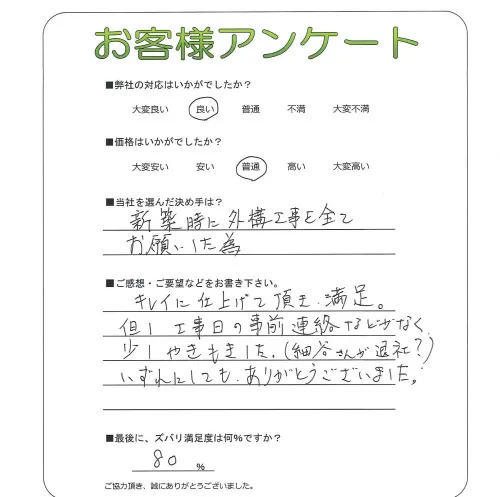 お客様アンケート
■弊社の対応はいかがでしたか?
大変良い 良い 普通 不満 大変不満
■価格はいかがでしたか?
大変安い 安い 普通 高い 大変高い
■当社を選んだ決め手は?
新築時に外構工事を全て
お願いした為
■ご感想・ご要望などをお書き下さい。
キレイに仕上げて頂き、満足。
但し工事日の事前連絡などがなく
少しやきもきした。(細谷さんが退社?)
いずれにしても、ありがとうございました。
■最後に、ズバリ満足度は何%ですか?
80 %
ご協力頂き、誠にありがとうございました。